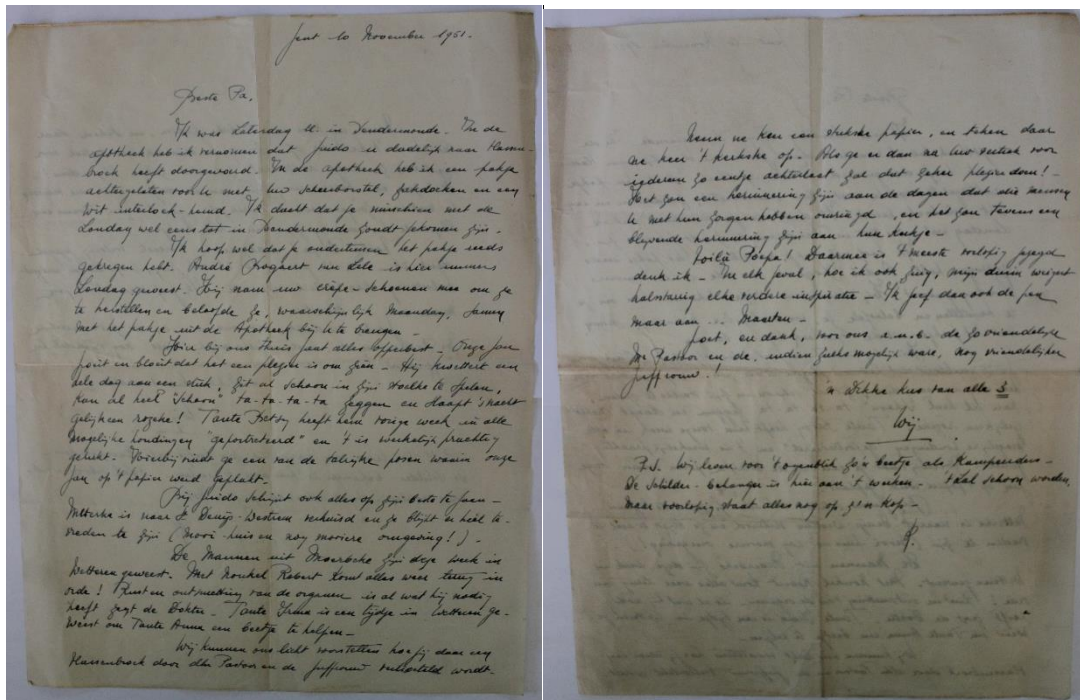 Gent 10 November 1951.
Beste Pa,
Ik was Zaterdag ll. in Dendermonde. In de
apotheek heb ik vernomen dat Guido U dadelijk naar Massen-
broek heeft doorgevoerd. In de apotheek heb ik een pakje
achtergelaten voor U met uw scheerborstel, zakdoeken en een
wit interlock-hemd. Ik dacht dat je misschien met de
Zondag wel eens tot in Dendermonde zoudt gekomen zijn.
Ik hoop wel dat je ondertussen het pakje reeds
gekregen hebt. André van Zele is hier immers
Zondag geweest. Hij nam uw crêpe-schoenen mee om ze
te herstellen en beloofde ze, waarschijnlijk Maandag, samen
met het pakje uit de Apotheek bij U te brengen.
Hier bij ons thuis gaat alles opperbest - Onze Jan
groeit en bloeit dat het een plezier is om zien - Hij knabbelt een
hele dag aan een stuk, zit al schoon in zijn stoeltje te spelen,
kan al heel "schoon" ta-ta-ta-ta zeggen en slaapt 's nachts
gelijk een rozeke! Tante Betsy heeft hem vorige week in alle
mogelijke houdingen "geportretteerd" en 't is werkelijk prachtig
gelukt. Hierbij vindt ge een van de talrijke posen waarin onze
Jan op 't papier werd geplakt.
Bij Guido schijnt ook alles op zijn beste te gaan -
Metterke is naar St Denijs-Westrem verhuisd en ze blijkt er heel te-
vreden te zijn (Mooi huis en nog mooiere omgeving!) -
De Mannen uit Moerbeke zijn deze week in
Wetteren geweest. Met Nonkel Robert komt alles weer terug in
orde! Rust en ontsmetting van de organen is al wat hij nodig
heeft zegt de Dokter - Tante Irma is een tijdje in Wetteren ge-
weest om Tante Anna een beetje te helpen -
Wij kunnen ons licht voorstellen hoe gij daar in
Massenbroek door dhr Pastoor en de Juffrouw verwend wordt.
Neem ne keer een stukske papier, en teken daar
ne keer 't kerkske op. Als ge er dan na uw vertrek voor
iedereen zo eentje achterlaat zal dat zeker plezier doen!
Het zou een herinnering zijn aan de dagen dat die mensen
U met hun zorgen hebben omringd, en het zou tevens een
blijvende herinnering zijn aan hun kerkje -
Voilà Poepa! Daarmee is 't meeste voorlopig gezegd
denk ik - In elk geval, hoe ik ook zuig, mijn duim weigert
halsstarrig elke verdere inspiratie - Ik geef dan ook de pen
maar aan ... Maarten -
Groet, en dank, voor ons a.u.b. de zo vriendelijke
Mr Pastoor en de, indien zulks mogelijk ware, nog vriendelijker
Juffrouw!
'n Dikke kus van alle 3
Wij
P.S. Wij leven voor 't ogenblik zo'n beetje als Kampeerders -
De Schilder-behanger is hier aan 't werken - 't zal schoon worden,
maar voorlopig staat alles nog op z'n kop -